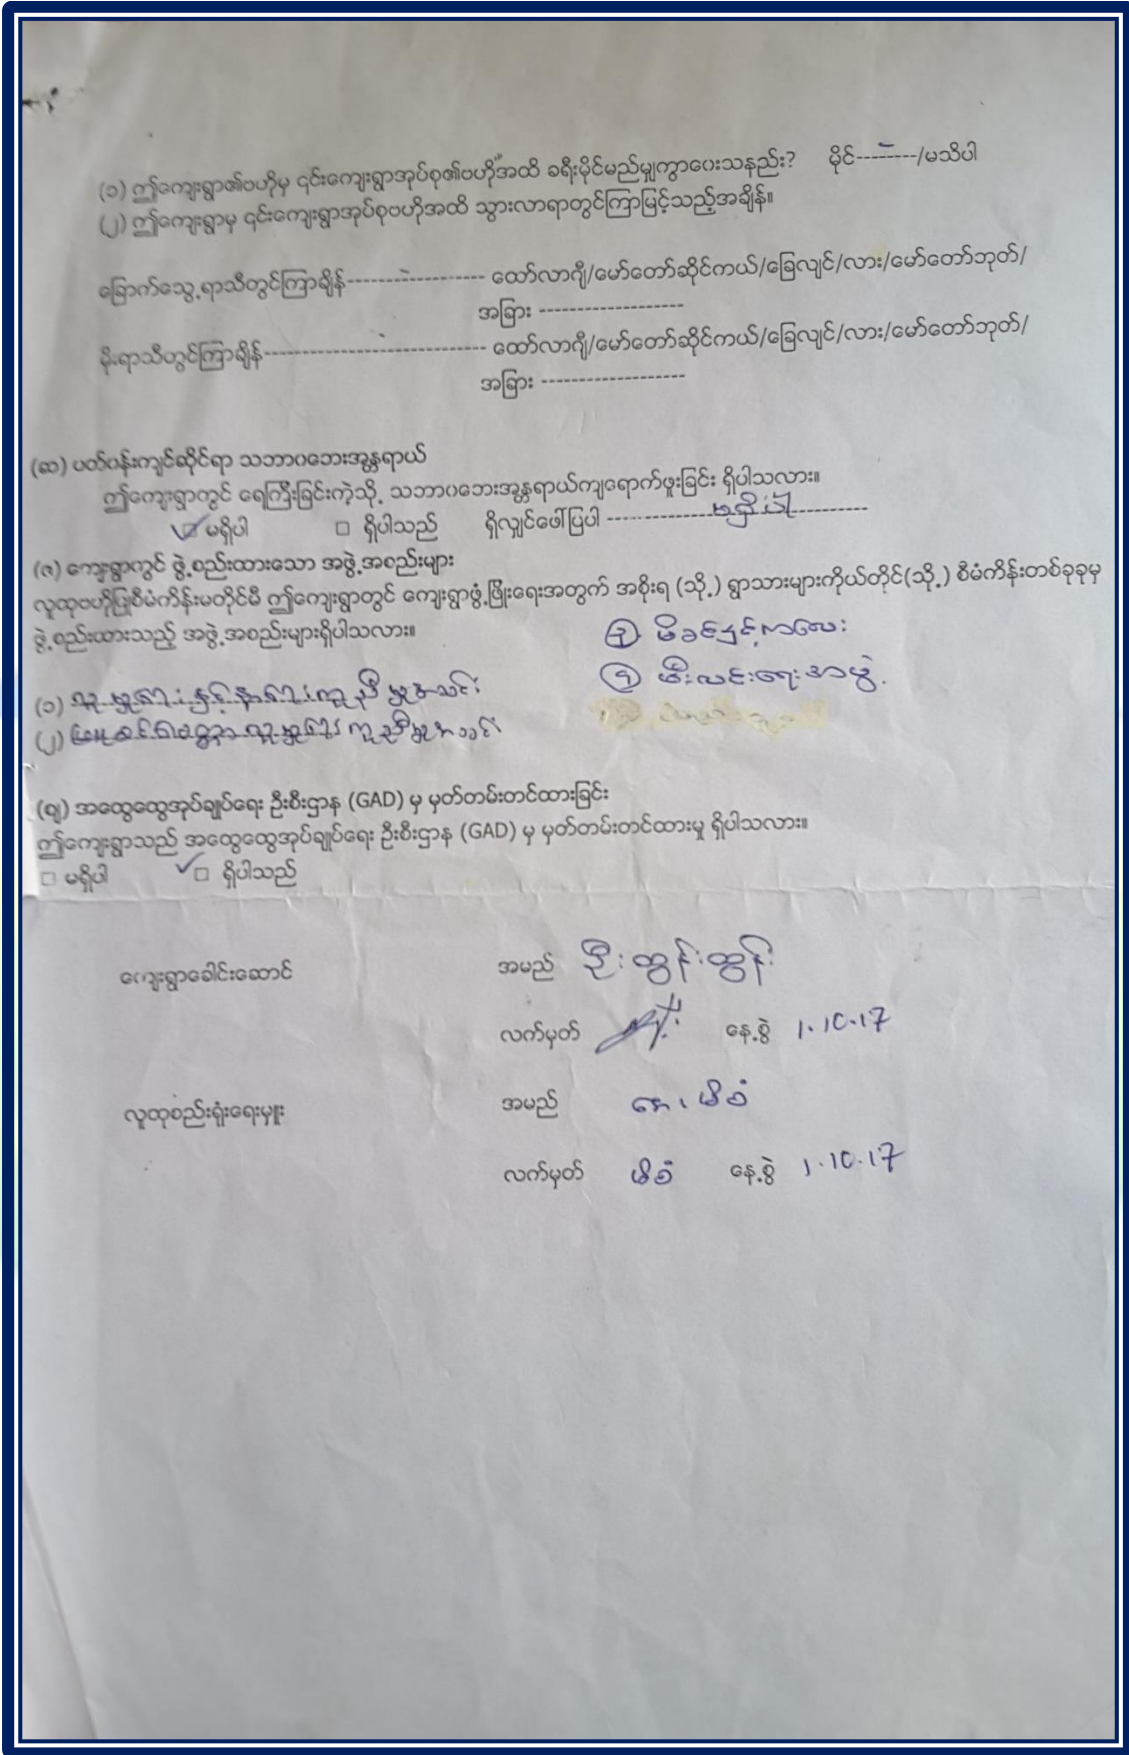 (၁) ဤကျေးရွာ၏ဗဟိုမှ ၎င်းကျေးရွာအုပ်စု၏ဗဟိုအထိ ခရီးမိုင်မည်မျှကွာဝေးသနည်း? မိုင်--------/မသိပါ
(၂) ဤကျေးရွာမှ ၎င်းကျေးရွာအုပ်စုဗဟိုအထိ သွားလာရာတွင်ကြာမြင့်သည့်အချိန်။
ခြောက်သွေ့ရာသီတွင်ကြာချိန်------------------- ထော်လာဂျီ/မော်တော်ဆိုင်ကယ်/ခြေလျင်/လား/မော်တော်ဘုတ်/
အခြား --------------------
မိုးရာသီတွင်ကြာချိန်------------------------------ ထော်လာဂျီ/မော်တော်ဆိုင်ကယ်/ခြေလျင်/လား/မော်တော်ဘုတ်/
အခြား --------------------
(ဆ) ပတ်ဝန်းကျင်ဆိုင်ရာ သဘာဝဘေးအန္တရာယ်
ဤကျေးရွာတွင် ရေကြီးခြင်းကဲ့သို့ သဘာဝဘေးအန္တရာယ်ကျရောက်ဖူးခြင်း ရှိပါသလား။
☑ မရှိပါ □ ရှိပါသည် ရှိလျှင်ဖော်ပြပါ -------------- မရှိပါ ----------
(ဇ) ကျေးရွာတွင် ဖွဲ့စည်းထားသော အဖွဲ့အစည်းများ
လူထုဗဟိုပြုစီမံကိန်းမတိုင်မီ ဤကျေးရွာတွင် ကျေးရွာဖွံ့ဖြိုးရေးအတွက် အစိုးရ (သို့) ရွာသားများကိုယ်တိုင်(သို့) စီမံကိန်းတစ်ခုခုမှ
ဖွဲ့စည်းထားသည့် အဖွဲ့အစည်းများရှိပါသလား။ ③ မိခင်နှင့်ကလေး
④ မီးလင်းရေးအဖွဲ့.
(၁) လူမှုရေး နှင့် နာရေး ကူညီမှုအသင်း
(၂) လူမှုရေး ကူညီမှုအသင်း
(ဈ) အထွေထွေအုပ်ချုပ်ရေး ဦးစီးဌာန (GAD) မှ မှတ်တမ်းတင်ထားခြင်း
ဤကျေးရွာသည် အထွေထွေအုပ်ချုပ်ရေး ဦးစီးဌာန (GAD) မှ မှတ်တမ်းတင်ထားမှု ရှိပါသလား။
□ မရှိပါ ✓□ ရှိပါသည်
ကျေးရွာခေါင်းဆောင် အမည် ဦးထွန်းထွန်း
လက်မှတ် နေ့စွဲ 1.10.17
လူထုစည်းရုံးရေးမှူး အမည် ဒေါ်မိစံ
လက်မှတ် မိစံ နေ့စွဲ 1.10.17